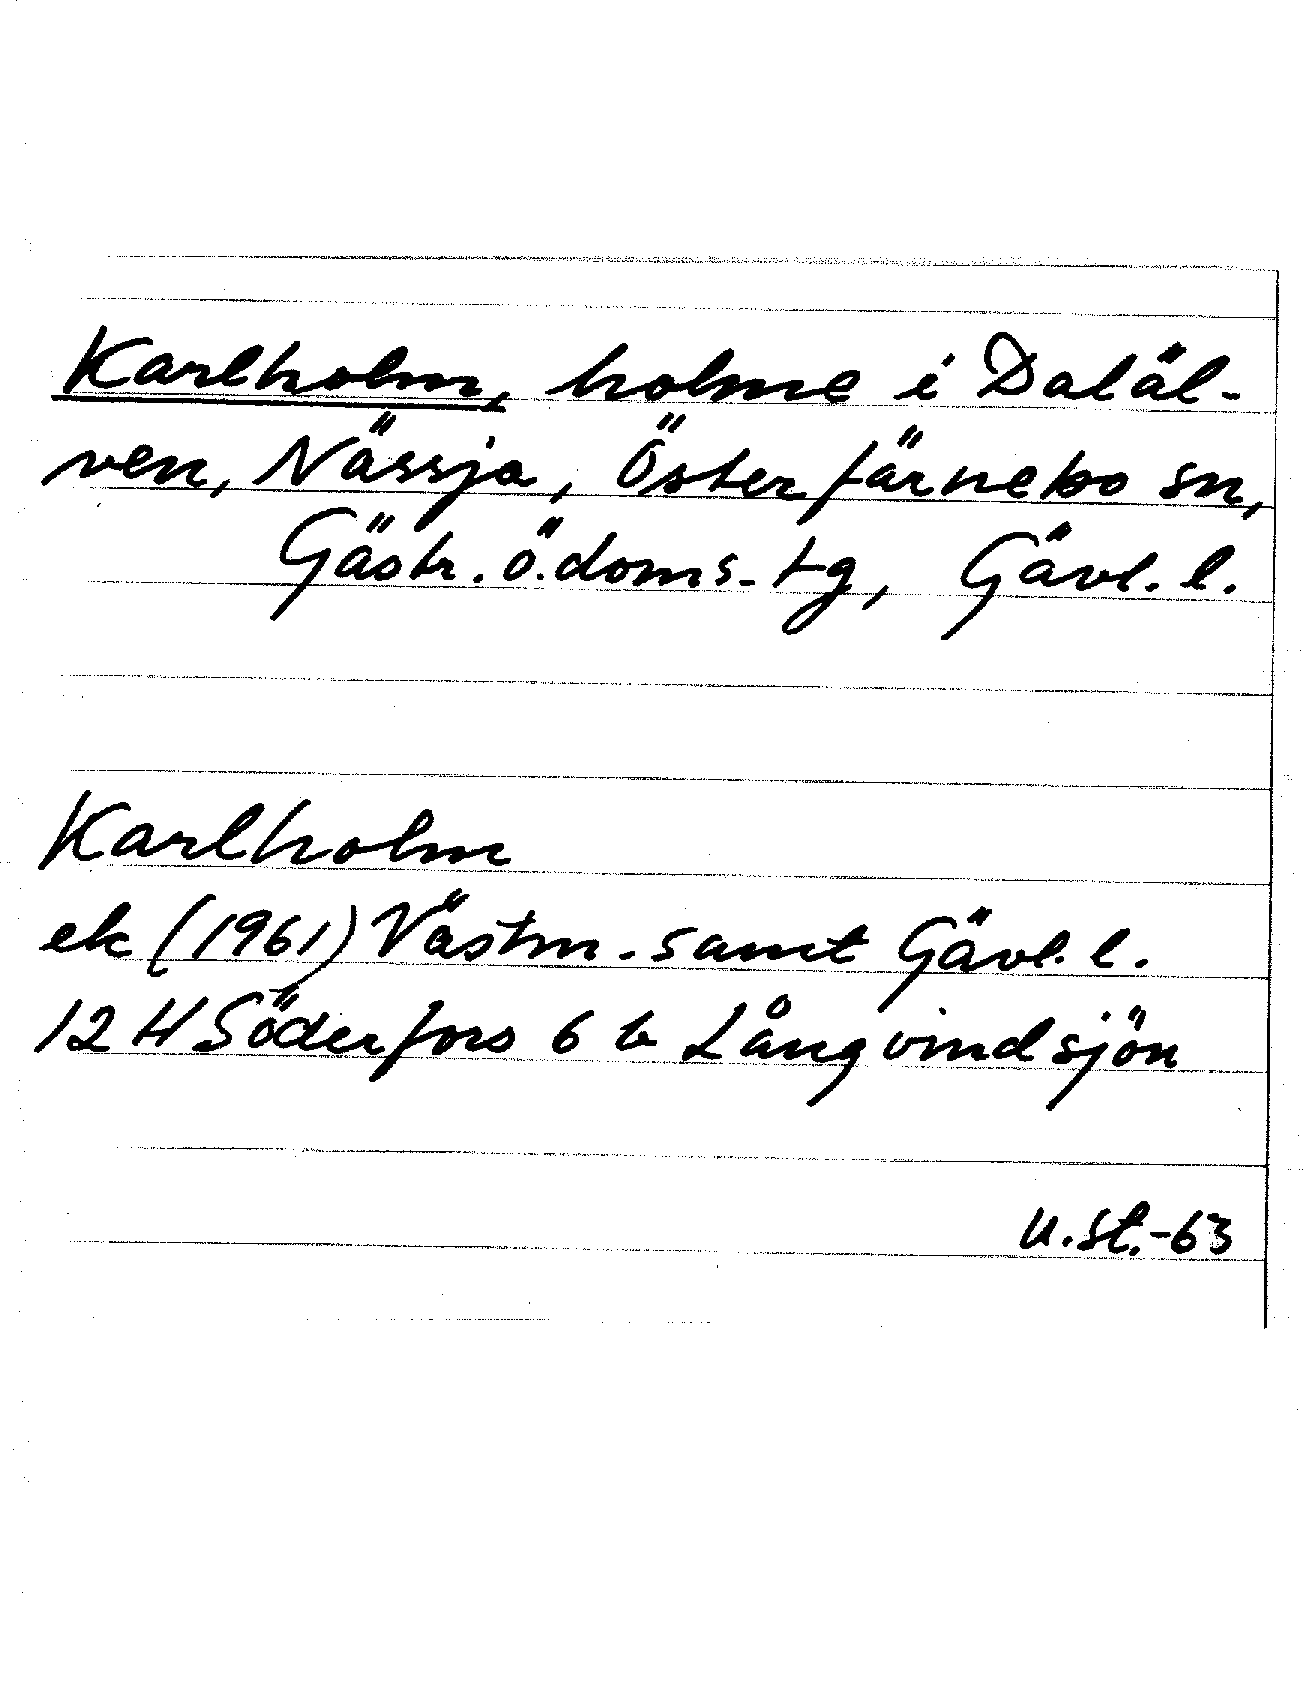 Karlholm, holme i Daläl-
ven, Nässja, Österfärnebo sn,
Gästr. ö. doms. tg, Gävl. l.
Karlholm
ek (1961) Västm. samt Gävl. l.
12 H Söderfors 6 b Långvindsjön
U.St.-63